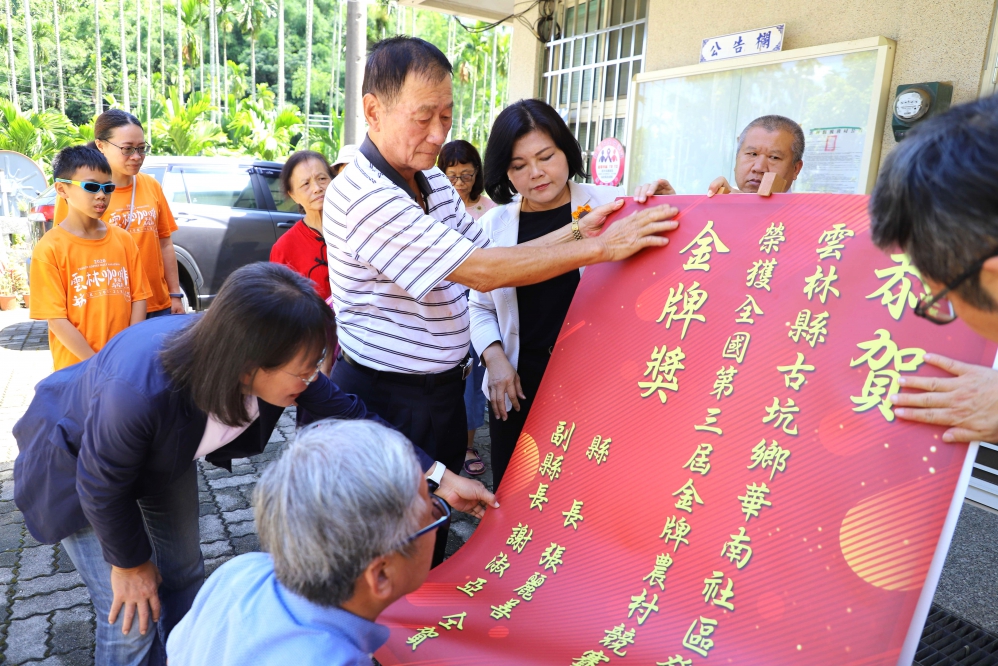 公告欄
恭賀
雲林縣古坑鄉華南社區
榮獲全國第三屆金牌農村競賽
金牌獎
縣長 張麗善
副縣長 謝淑亞 仝賀
雲林咖啡
雲林咖啡